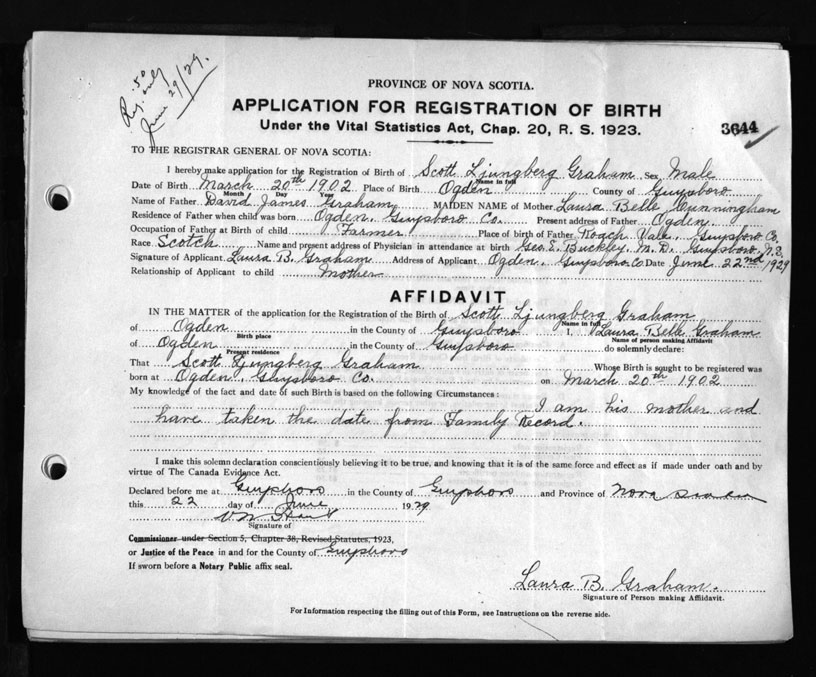 .50
Reg. only
June 29/29.
PROVINCE OF NOVA SCOTIA.
APPLICATION FOR REGISTRATION OF BIRTH
Under the Vital Statistics Act, Chap. 20, R. S. 1923.
3644
TO THE REGISTRAR GENERAL OF NOVA SCOTIA:
I hereby make application for the Registration of Birth of Scott Ljungberg Graham Sex Male
Name in full
Date of Birth March 20th 1902 Place of Birth Ogden County of Guysboro
Month Day Year
Name of Father David James Graham MAIDEN NAME of Mother Laura Belle Cunningham
Residence of Father when child was born Ogden, Guysboro Co. Present address of Father Ogden,
Occupation of Father at Birth of child Farmer Place of birth of Father Roach Vale, Guysboro Co.
Race Scotch Name and present address of Physician in attendance at birth Geo. E. Buckley, M. D. Guysboro, N.S.
Signature of Applicant Laura B. Graham Address of Applicant Ogden, Guysboro Co. Date June 22nd 1929
Relationship of Applicant to child Mother
AFFIDAVIT
IN THE MATTER of the application for the Registration of the Birth of Scott Ljungberg Graham
Name in full
of Ogden in the County of Guysboro I, Laura Belle Graham
Birth place Name of person making Affidavit
of Ogden in the County of Guysboro do solemnly declare:
Present residence
That Scott Ljungberg Graham Whose Birth is sought to be registered was
born at Ogden, Guysboro Co. on March 20th 1902
My knowledge of the fact and date of such Birth is based on the following Circumstances:
I am his mother and
have taken the date from Family Record.
I make this solemn declaration conscientiously believing it to be true, and knowing that it is of the same force and effect as if made under oath and by
virtue of The Canada Evidence Act.
Declared before me at Guysboro in the County of Guysboro and Province of Nova Scotia
this 22 day of June 1929
Signature of
Commissioner under Section 5, Chapter 38, Revised Statutes, 1923,
or Justice of the Peace in and for the County of Guysboro
If sworn before a Notary Public affix seal.
Laura B. Graham.
Signature of Person making Affidavit.
For Information respecting the filling out of this Form, see Instructions on the reverse side.